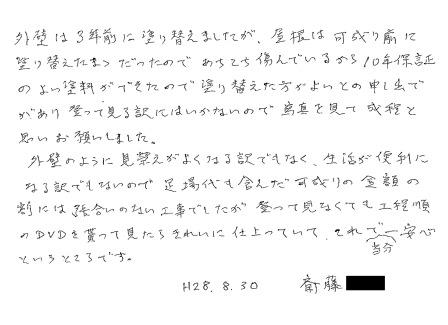 外壁は3年前に塗り替えましたが、屋根は可成り前に
塗り替えたまゝだったので あちこち傷んでいるから10年保証
のよい塗料ができたので塗り替えた方がよいとの申し出で
があり 登って見る訳にはいかないので 写真を見て 成程と
思いお願いしました。
外壁のように見栄えがよくなる訳でもなく、生活が便利に
なる訳でもないので 足場代も含んだ可成りの金額の
割には張合いのない工事でしたが 登って見なくても工程順
のDVDを貰って見たらきれいに仕上っていて、これで当分一安心
というところです。
H28.8.30 斎藤